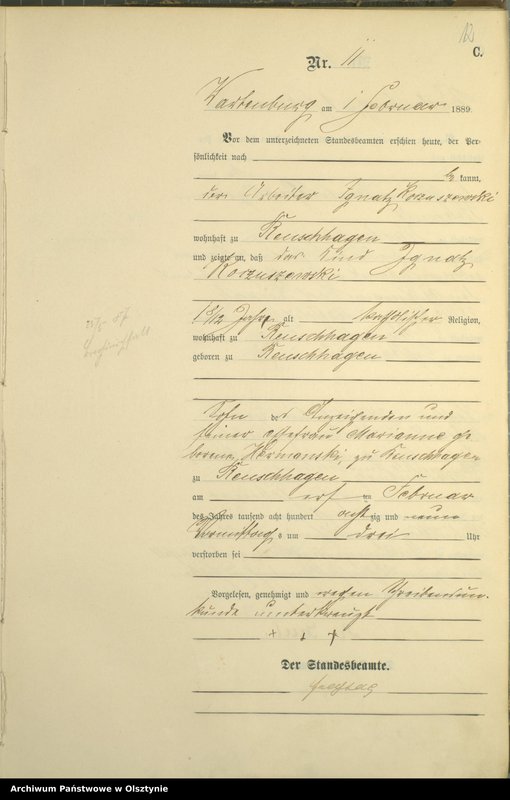 12
C.
Nr. 11
Wartenburg am 1 Februar 1889
Vor dem unterzeichneten Standesbeamten erschien heute, der Per-
sönlichkeit nach
be kannt,
der Arbeiter Ignatz Koczuszewski
wohnhaft zu Reuschhagen
und zeigte an, daß das Kind Ignatz
Koczuszewski
Jahr alt katholischer Religion,
wohnhaft zu Reuschhagen
geboren zu Reuschhagen
Sohn des Anzeigenden und
seiner Ehefrau Marianne ge
borene Hermanski, zu Reuschhagen
zu Reuschhagen
am ersten Februar
des Jahres tausend acht hundert achtzig und neun
Vormittags um drei Uhr
verstorben sei
Vorgelesen, genehmigt und wegen Schreibensun-
kunde unterkreuzt
+ + +
Der Standesbeamte.
Archiwum Państwowe w Olsztynie